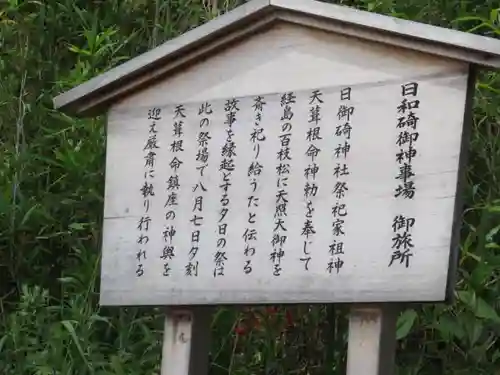 日和碕御神事場　御旅所
日御碕神社祭祀家祖神
天葺根命神勅を奉じて
経島の百枝松に天照大御神を
斎き祀り給うたと伝わる
故事を縁起する夕日の祭は
此の祭場で八月七日夕刻
天葺根命鎮座の神輿を
迎え厳粛に執り行われる